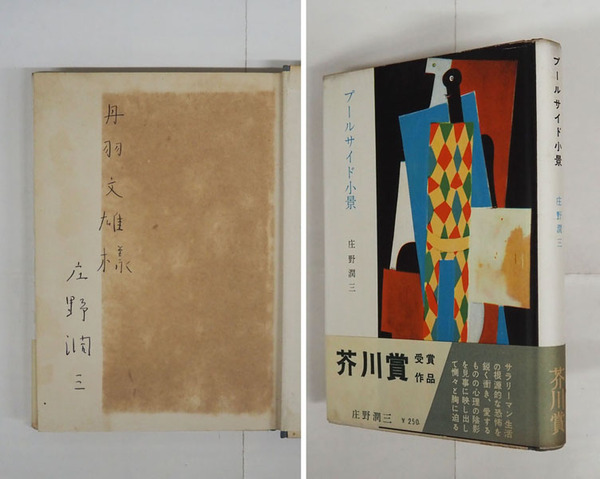 丹羽文雄様
庄野潤三
プールサイド小景
庄野潤三
芥川賞
受賞
作品
庄野潤三
¥250
サラリーマン生活
の根源的な恐怖を
鋭く衝き、愛する
ものの心理の陰影
を見事に映し出し
て惻々と胸に迫る
プールサイド小景
庄野潤三
芥川賞